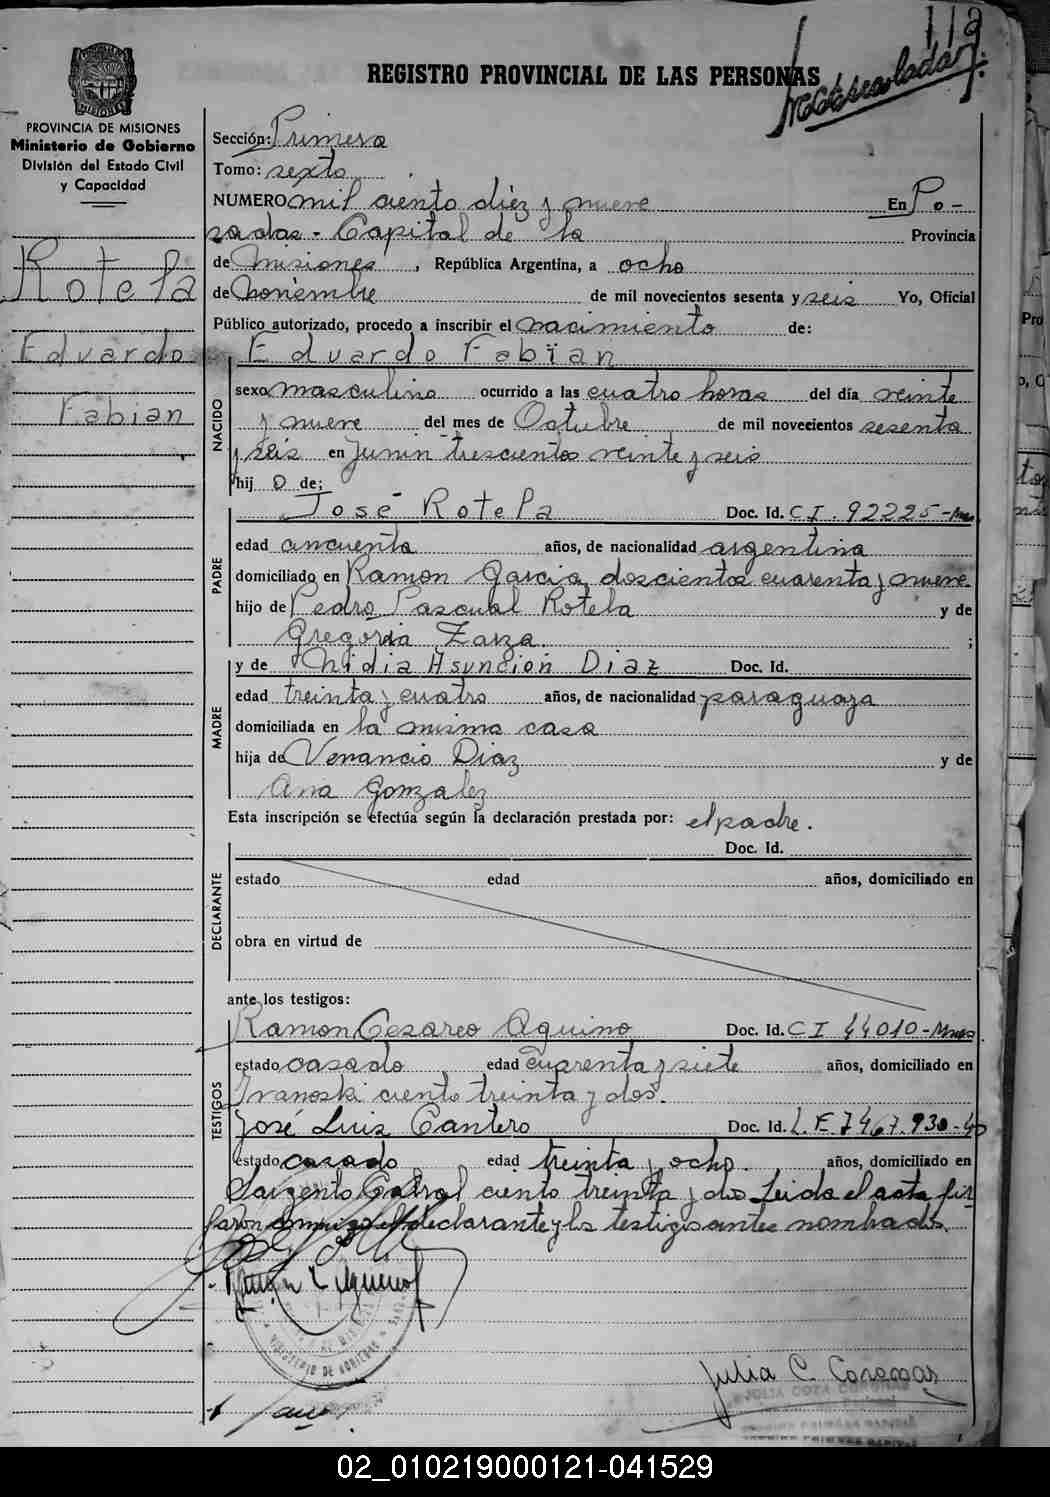 112
REGISTRO PROVINCIAL DE LAS PERSONAS
PROVINCIA DE MISIONES
Ministerio de Gobierno
División del Estado Civil
y Capacidad
Rotela
Eduardo
Fabian
Sección: Primera
Tomo: sexto
NUMERO mil ciento diez y nueve En Po-
sadas - Capital de la Provincia
de Misiones, República Argentina, a ocho
de noviembre de mil novecientos sesenta y seis Yo, Oficial
Público autorizado, procedo a inscribir el nacimiento de:
Eduardo Fabian
NACIDO
sexo masculino ocurrido a las cuatro horas del día veinte
y nueve del mes de Octubre de mil novecientos sesenta
y seis en Junin trescientos veinte y seis
hij o de:
José Rotela Doc. Id. C I. 92225-
PADRE
edad cincuenta años, de nacionalidad argentina
domiciliado en Ramon Garcia doscientos cuarenta y nueve
hijo de Pedro Pascual Rotela y de
Gregoria Zarza ;
y de Nidia Asunción Diaz Doc. Id.
MADRE
edad treinta y cuatro años, de nacionalidad paraguaya
domiciliada en la misma casa
hija de Venancio Diaz y de
Ana Gonzalez
Esta inscripción se efectúa según la declaración prestada por: el padre.
Doc. Id.
DECLARANTE
estado edad años, domiciliado en
obra en virtud de
ante los testigos:
Ramon Cesareo Aquino Doc. Id. C I 44010-Mnes
TESTIGOS
estado casado edad cuarenta y siete años, domiciliado en
Ivanoski ciento treinta y dos.
José Luis Cantero Doc. Id. L.E. 7467.930-
estado casado edad treinta y ocho. años, domiciliado en
Sargento Cabral ciento treinta y dos Leida el acta fir
maron conmigo el declarante y los testigos antes nombrados.
Julia C. Coronas
JULIA COTA CORONAS
02_010219000121-041529